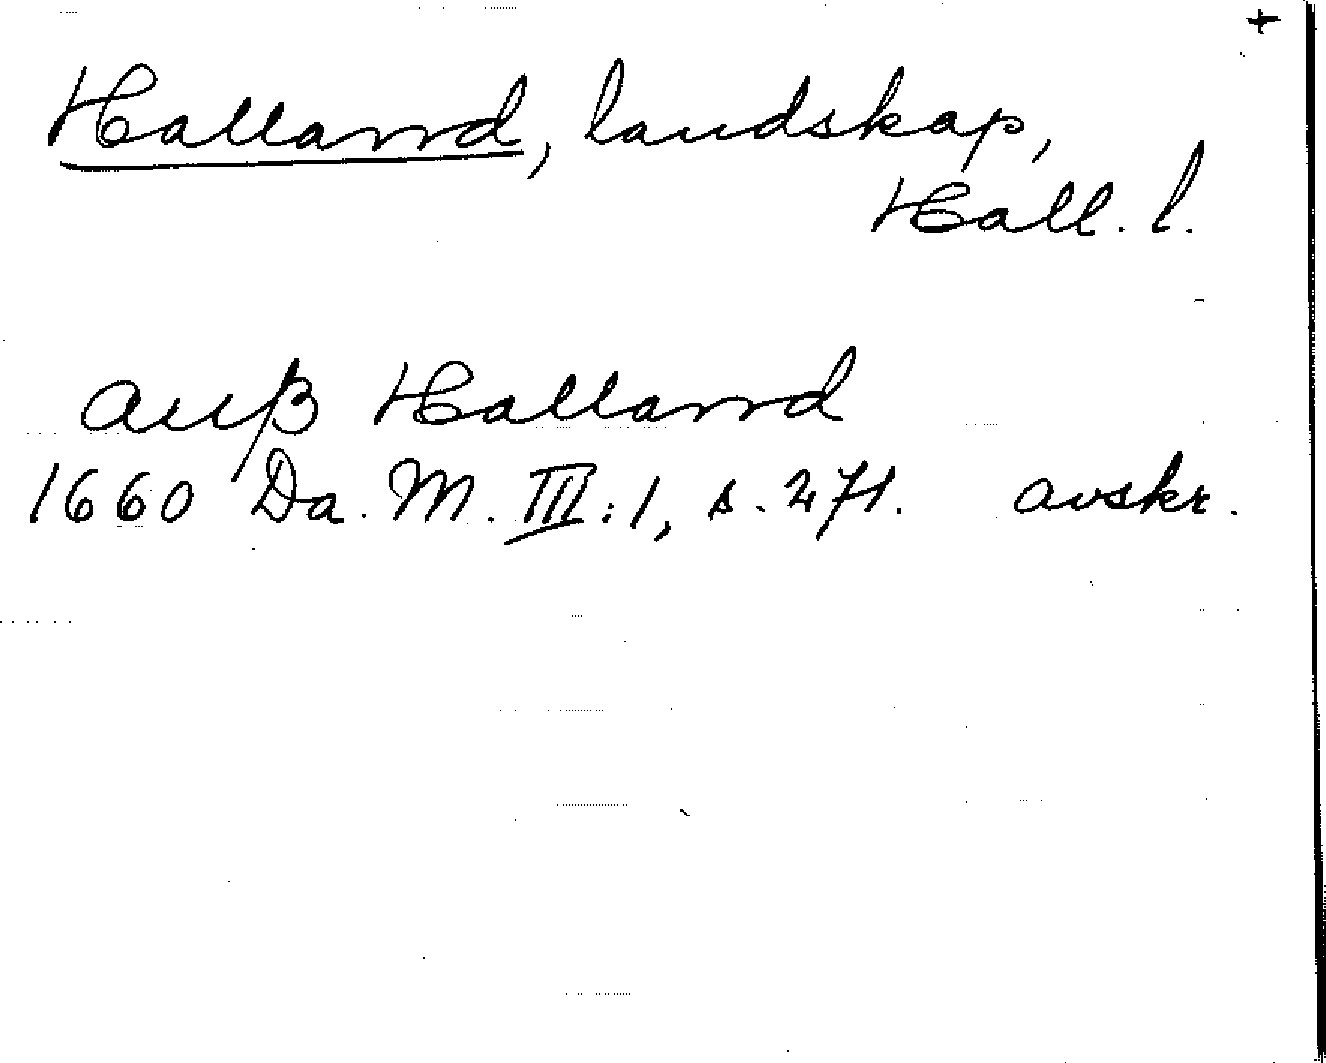 +
Halland, landskap,
Hall. l.
auß Halland
1660 Da. M. III:1, s. 271. avskr.